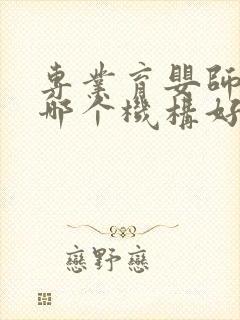 專業育嬰師
哪個機構好
戀野戀